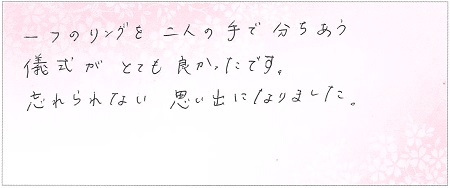 一つのリングを 二人の手で分ちあう
儀式が とても良かったです。
忘れられない 思い出になりました。